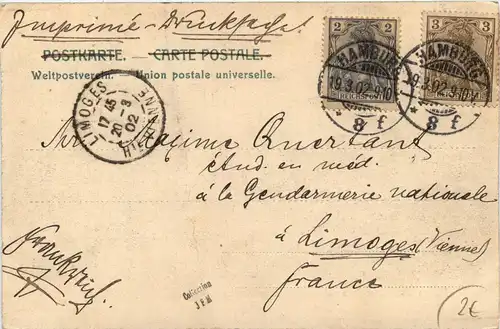 Imprimé - Drucksache
POSTKARTE. — CARTE POSTALE.
Weltpostverein. Union postale universelle.
2 2
REICHSPOST
3 3
HAMBURG
19.3.02.9-10
* 8 f
HAMBURG
* 8 f
LIMOGES
17 45
20 -3
02
HTE VIENNE
Mr Maxime Quertant
étud. en méd.
à la Gendarmerie nationale
à Limoges (Vienne)
France
Frankreich.
Collection
2€